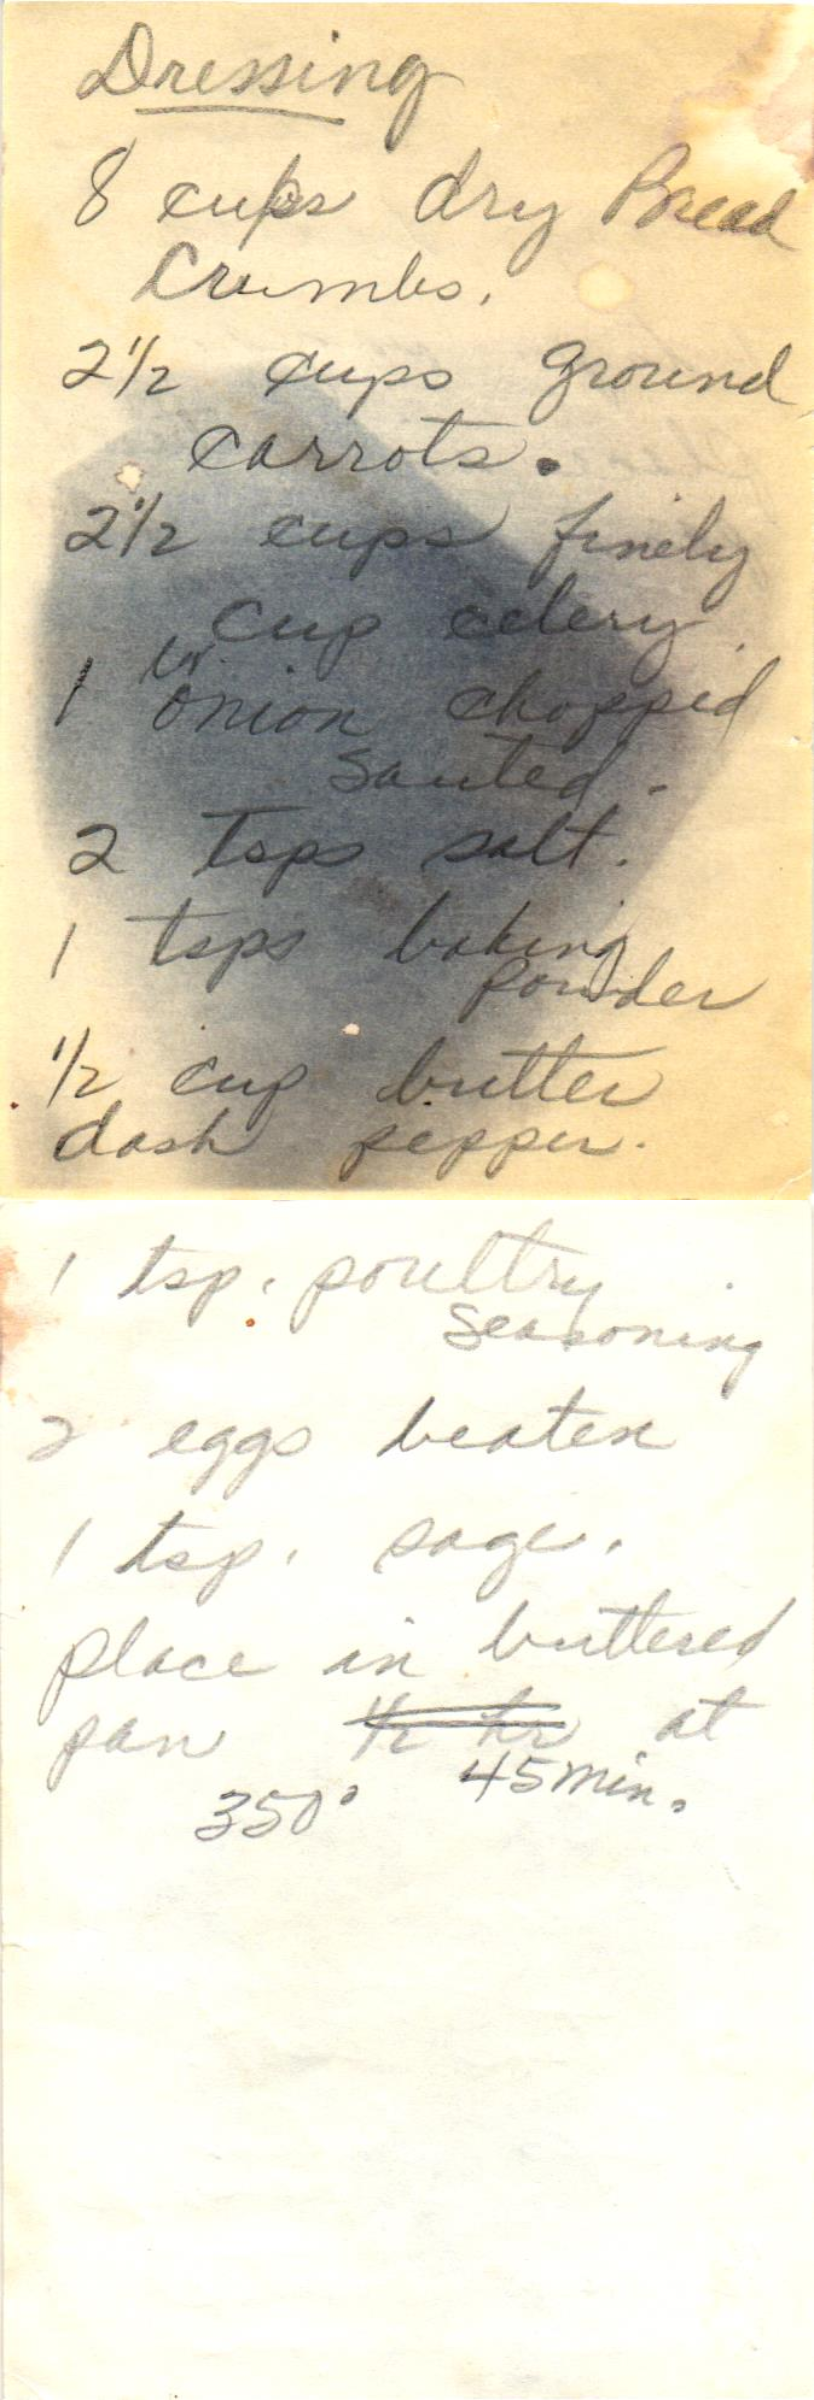 Dressing
8 cups dry Bread
Crumbs.
2 1/2 cups ground
carrots.
2 1/2 cups finely
cup celery.
1
onion chopped
sauted.
2 Tsps salt.
1 tsps baking
powder
1/2 cup butter
dash pepper.
1 tsp. poultry
seasoning
2 eggs beaten
1 tsp. sage.
place in buttered
pan 1/2 hr at
350° 45 min.